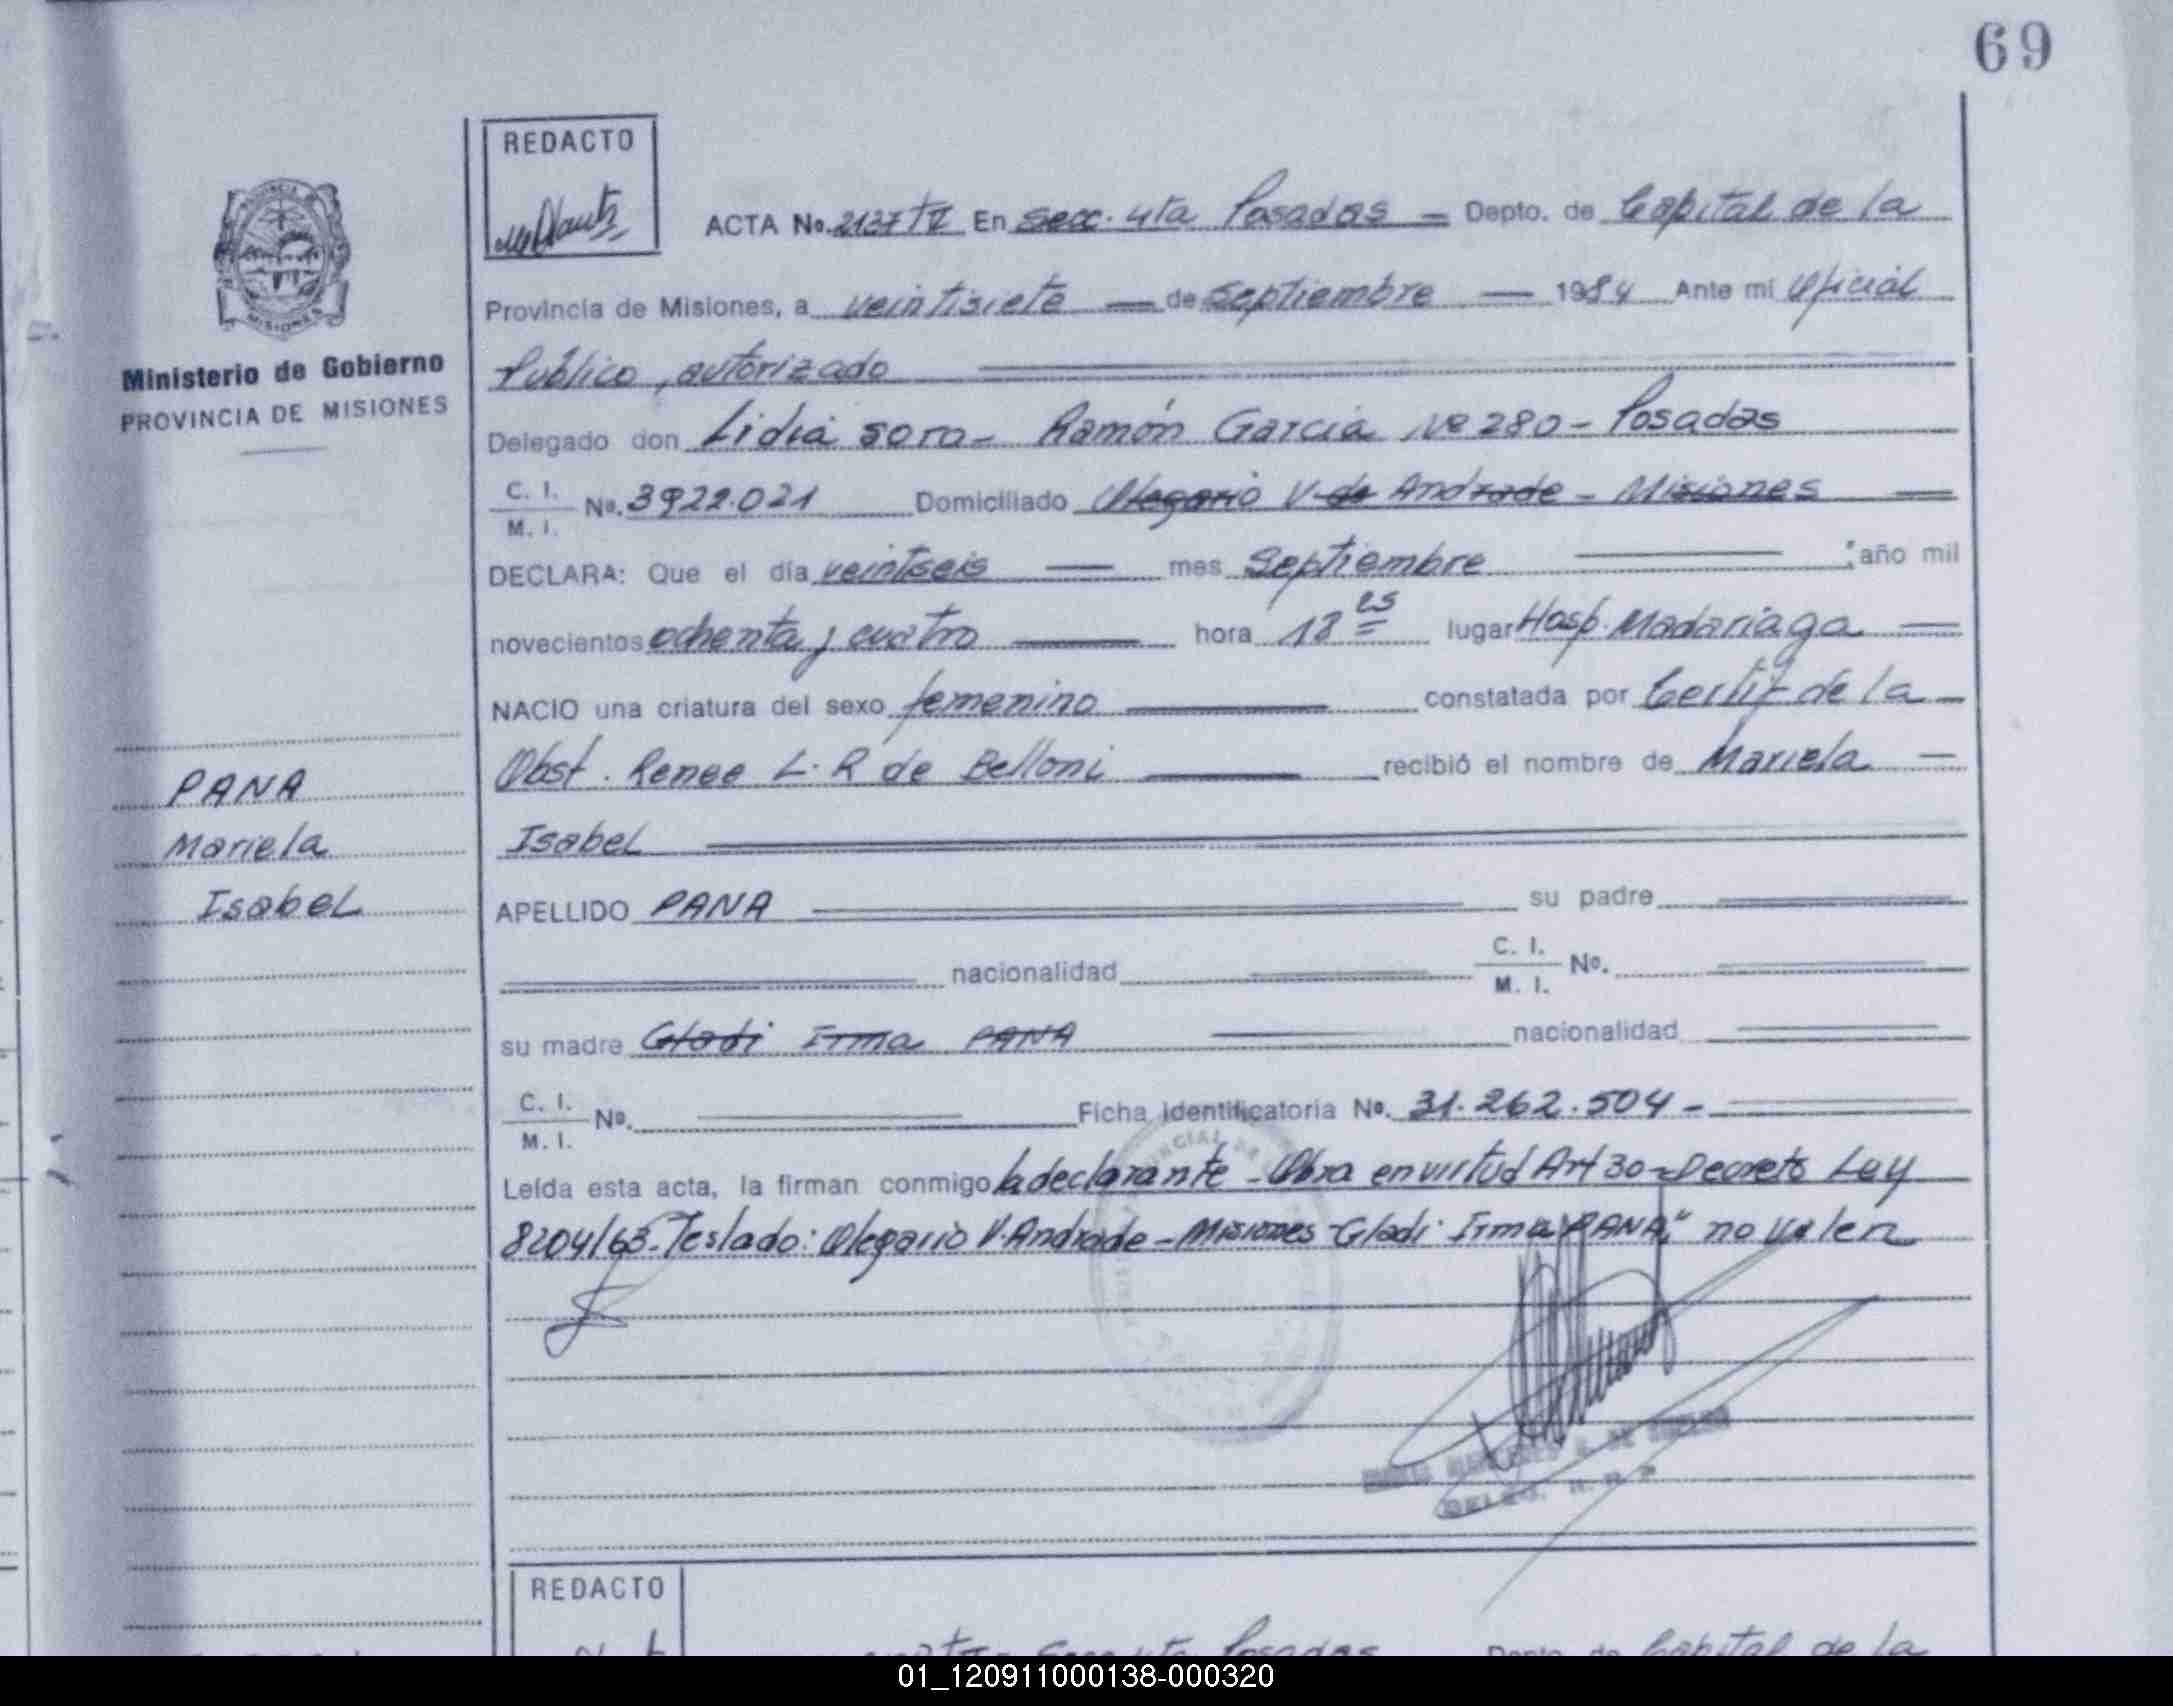 69
REDACTO
ACTA No. 2137 TV En secc. 4ta Posadas — Depto. de Capital de la
Provincia de Misiones, a veintisiete — de Septiembre — 1984 Ante mi Oficial
Ministerio de Gobierno
PROVINCIA DE MISIONES
Público, autorizado
Delegado don Lidia Soro - Ramón Garcia Nº 280 - Posadas
C. I.
M. I.
No. 3922.021 Domiciliado Olegario V. de Andrade - Misiones —
DECLARA: Que el día veintseis — mes Septiembre — ; año mil
novecientos ochenta y cuatro — hora 18 es lugar Hosp. Madariaga —
NACIO una criatura del sexo femenino — constatada por Certif de la —
Obst. Renee L. R de Belloni — recibió el nombre de Mariela —
Isabel
PANA
Mariela
Isabel
APELLIDO PANA — su padre —
nacionalidad — C. I.
M. I. No. —
su madre Gladi Irma PANA — nacionalidad —
C. I.
M. I. No. — Ficha identificatoria No. 31.262.504 -
Leída esta acta, la firman conmigo la declarante - Obra en virtud Art 30 - Decreto Ley
8204/63. Teslado: Olegario V. Andrade - Misiones - Gladi Irma PANA" no valen
REDACTO
Posadas Depto. de Capital de la
01_120911000138-000320